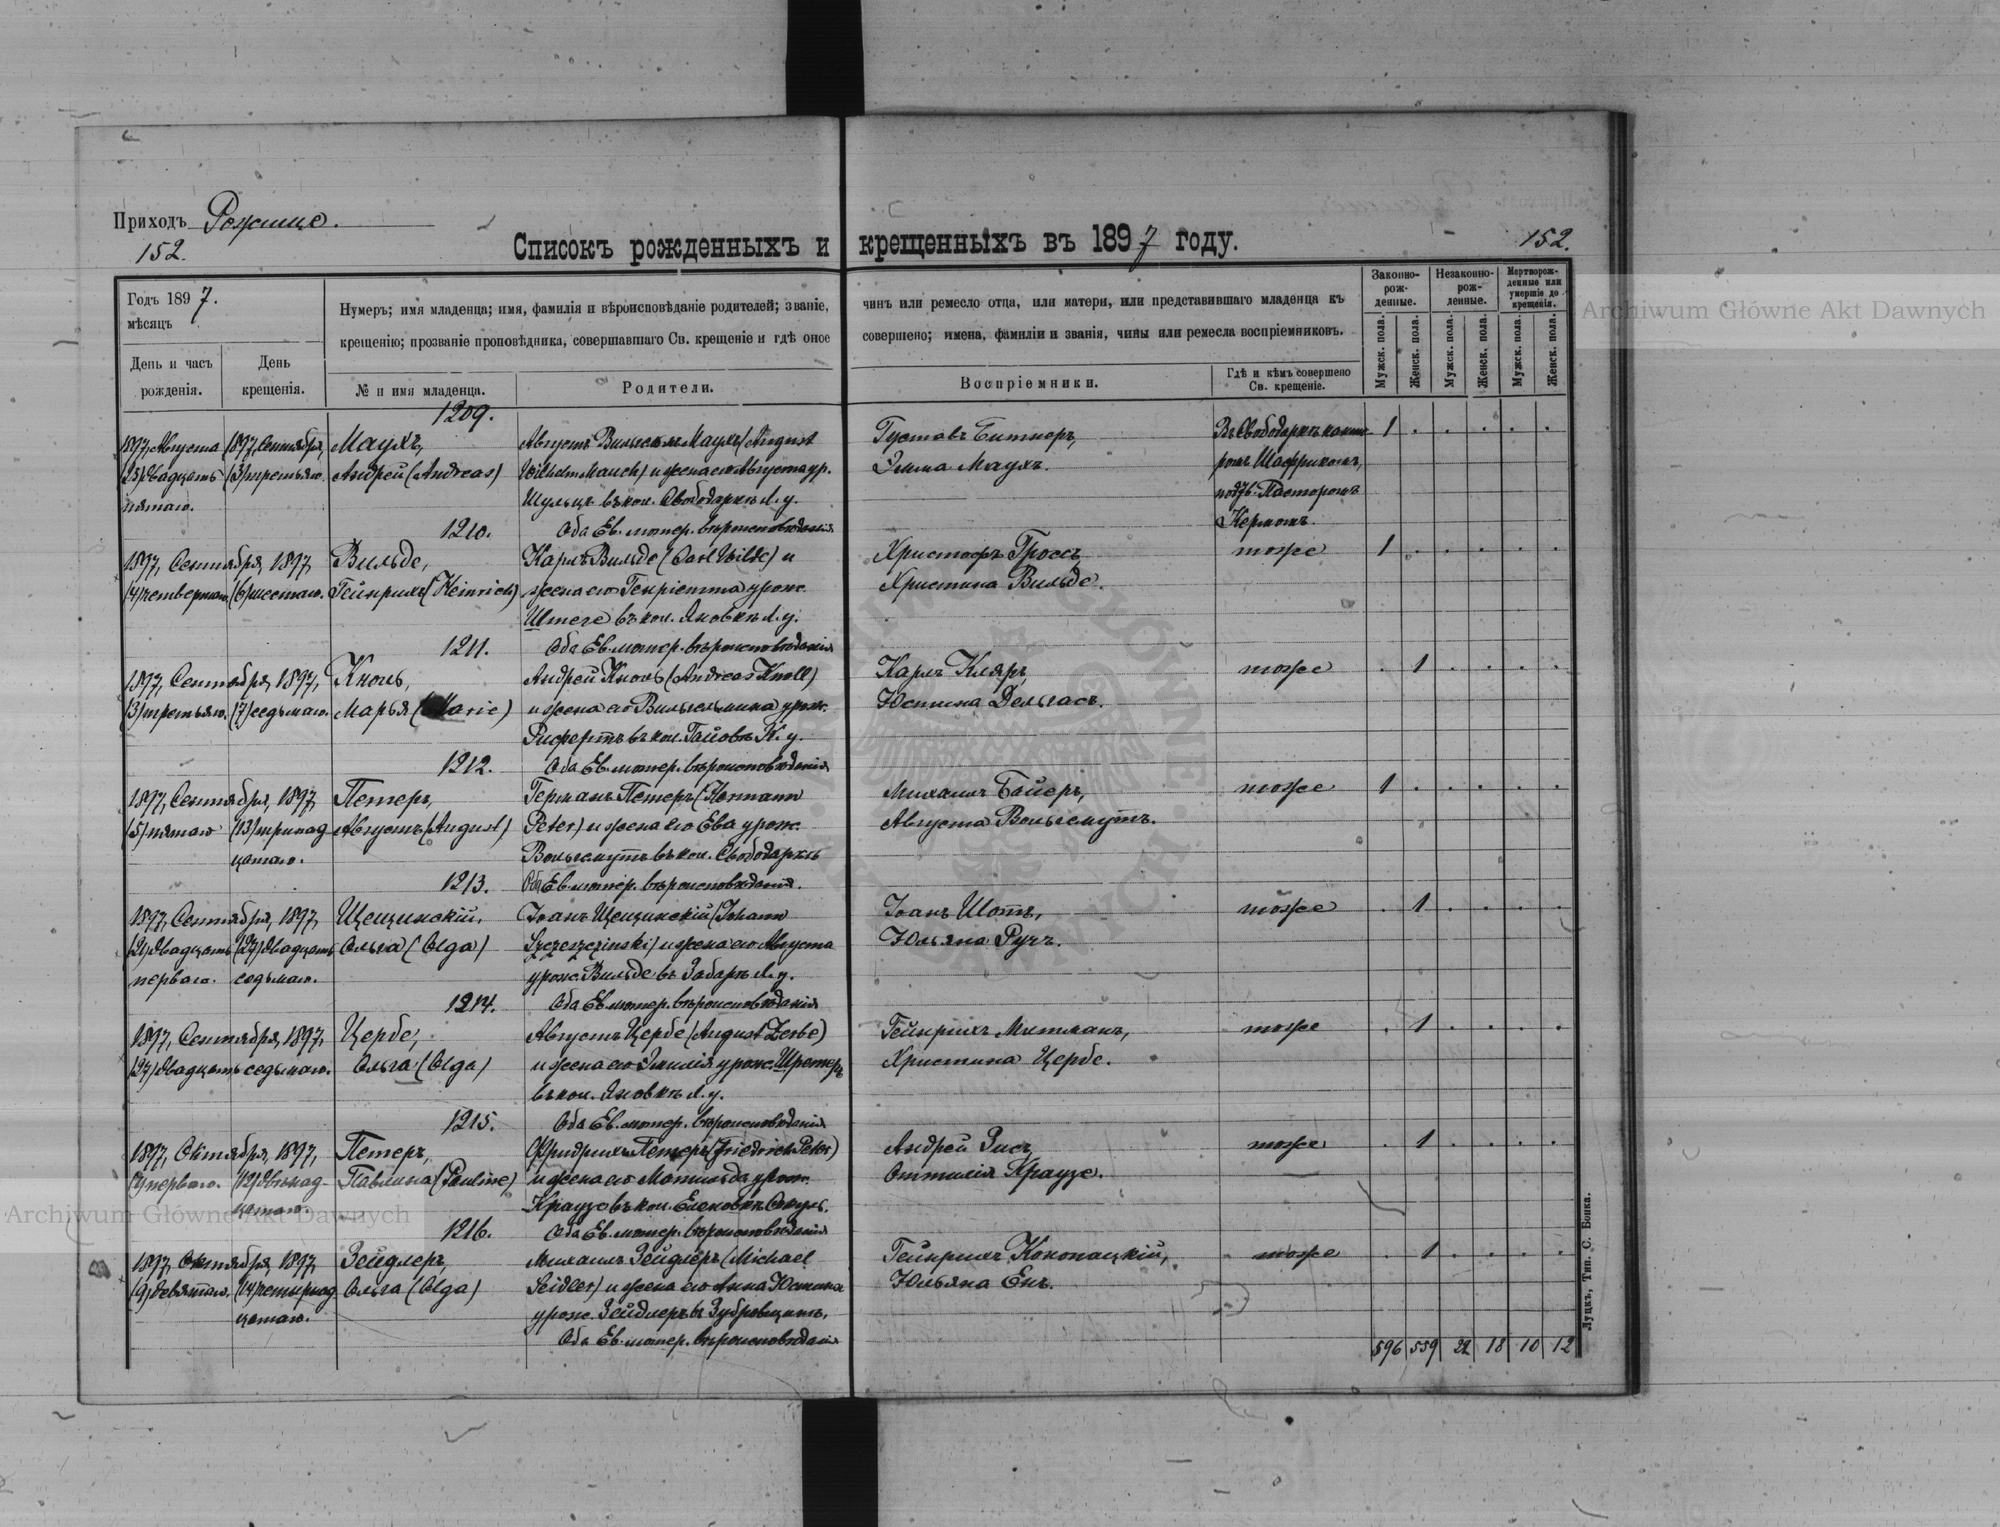 Приходъ Рожище.
152.
Списокъ рожденныхъ и крещенныхъ въ 1897 году.
152.
Годъ 1897.
мѣсяцъ
День и часъ рожденія.
День крещенія.
Нумеръ; имя младенца; имя, фамилія и вѣроисповѣданіе родителей; званіе,
крещенію; прозваніе проповѣдника, совершавшаго Св. крещеніе и гдѣ оное
№ и имя младенца.
Родители.
чинъ или ремесло отца, или матери, или представившаго младенца къ
совершено; имена, фамиліи и званія, чины или ремесла воспріемниковъ.
Воспріемники.
Гдѣ и кѣмъ совершено
Св. крещеніе.
Законно-
рож-
денные.
Незаконно-
рож-
денные.
Мертворож-
денные или
умершіе до
крещенія.
Мужск. пола.
Женск. пола.
Мужск. пола.
Женск. пола.
Мужск. пола.
Женск. пола.
1209.
1897, Августа 1897, Сентября, Маухъ, Августъ Вильгельмъ Маухъ (August Густавъ Битнеръ, Въ Свободаркѣ канто- 1
(25) двадцать (3) третьяго. Андрей (Andreas) Wilhelm Mauch) и жена его Августа ур. Эмма Маухъ. ромъ Шафрикомъ,
пятаго. Шульцъ въ кол. Свободаркѣ Л. у. подтв. Пасторомъ
1210. Оба Ев. лютер. вѣроисповѣданія Кермомъ.
1897, Сентября, 1897, Вильде, Карлъ Вильде (Carl Wilde) и Христофъ Гроссъ, тоже 1
(4) четвертаго (6) шестаго. Гейнрихъ (Heinrich) жена его Генріетта урож. Христина Вильде.
Штеге въ кол. Яновкѣ Л. у.
1211. Оба Ев. лютер. вѣроисповѣданія
1897, Сентября, 1897, Кноль, Андрей Кноль (Andreas Knoll) Карлъ Кляръ, тоже 1
(3) третьяго. (7) седьмаго. Марья (Marie) и жена его Вильгельмина урож. Юстина Дельгасъ.
Рифертъ въ кол. Гайовкѣ К. у.
1212. Оба Ев. лютер. вѣроисповѣданія
1897, Сентября, 1897, Петеръ, Германъ Петеръ (Hermann Михаилъ Байеръ, тоже 1
(5) пятаго (13) тринад Августъ (August) Peter) и жена его Ева урож. Августа Вольгемутъ.
цатаго. Вольгемутъ въ кол. Свободаркѣ
1213. Оба Ев. лютер. вѣроисповѣданія.
1897, Сентября, 1897, Щещинскій, Іоанъ Щещинскій (Johann Іоанъ Шоттъ, тоже 1
(21) двадцать (27) двадцать Ольга (Olga) Szczeszczinski) и жена его Августа Юльяна Ручъ.
перваго. седьмаго. урож. Вильде въ Забарѣ Л. у.
1214. Оба Ев. лютер. вѣроисповѣданія
1897, Сентября, 1897, Цербе, Августъ Цербе (August Zerbe) Гейнрихъ Митманъ, тоже 1
(27) двадцать седьмаго. Ольга (Olga) и жена его Эмилія урож. Шретеръ Христина Цербе.
въ кол. Яновкѣ Л. у.
1215. Оба Ев. лютер. вѣроисповѣданія
1897, Октября, 1897, Петеръ, Фридрихъ Петеръ (Friedrich Peter) Андрей Зисъ, тоже 1
(1) перваго. (12) двѣнад- Павлина (Pauline) и жена его Матильда урож. Оттилія Краузе.
цатаго. Краузе въ кол. Еленовкѣ
1216. Оба Ев. лютер. вѣроисповѣданія
1897, Октября, 1897, Зейдлеръ, Михаилъ Зейдлеръ (Michael Гейнрихъ Конопацкій, тоже 1
(9) девятаго. (14) четырнад Ольга (Olga) Seidler) и жена его Анна Юстина Юльяна Енъ.
цатаго. урож. Зейдлеръ въ
Оба Ев. лютер. вѣроисповѣданія
596 559 22 18 10 12
Луцкъ, Тип. С. Бонка.
Archiwum Główne Akt Dawnych
Archiwum Główne Akt Dawnych